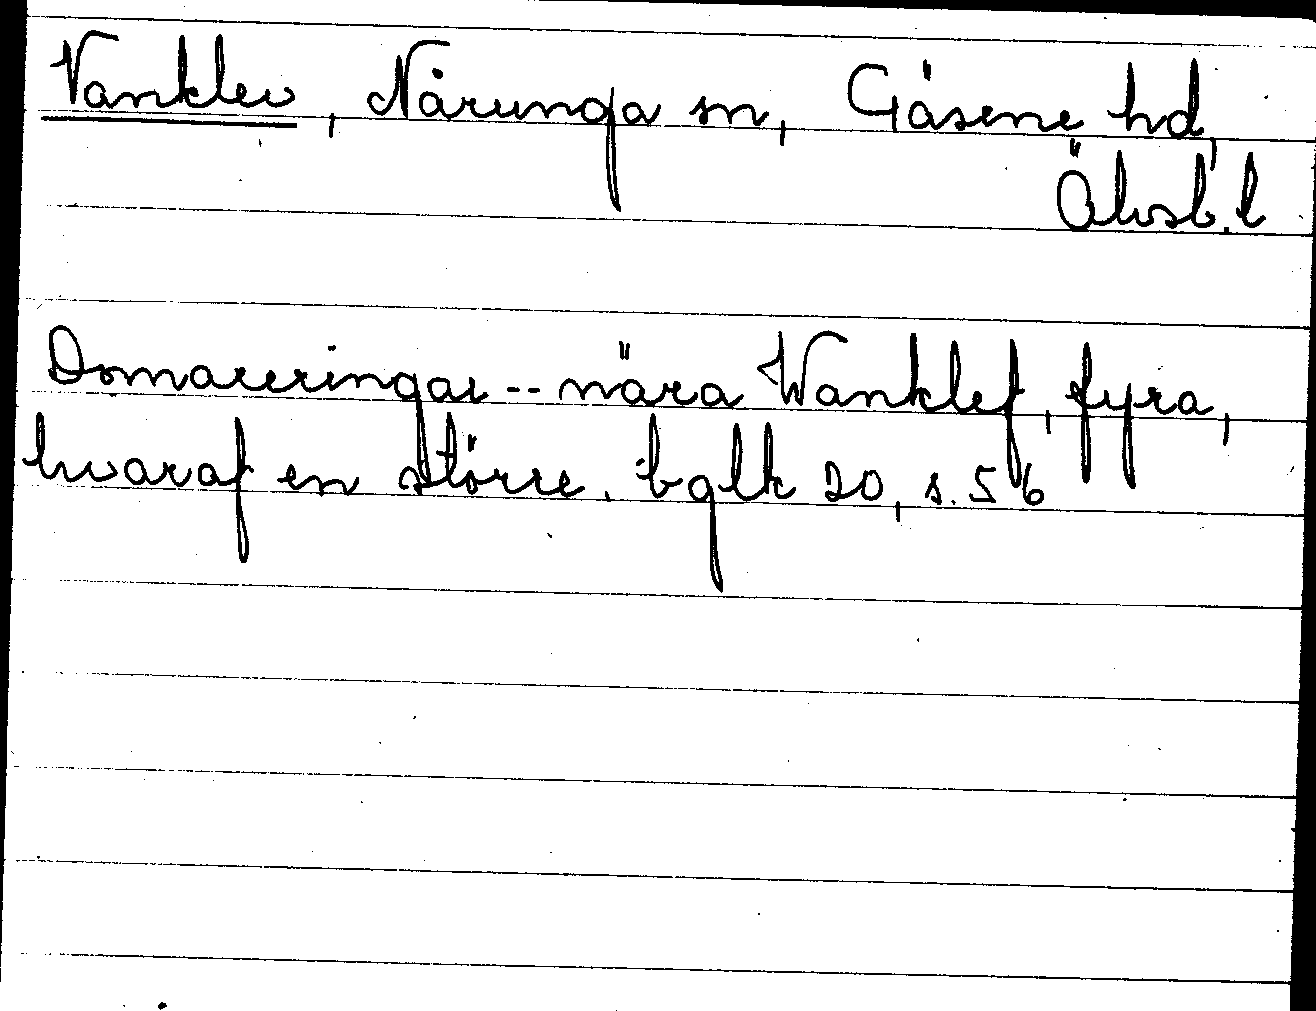 Vanklev, Nårunga sn, Gäsene hd,
Älvsb. l
Domareringar -- nära Wanklef, fyra,
hvaraf en större. bglk 20, s. 56